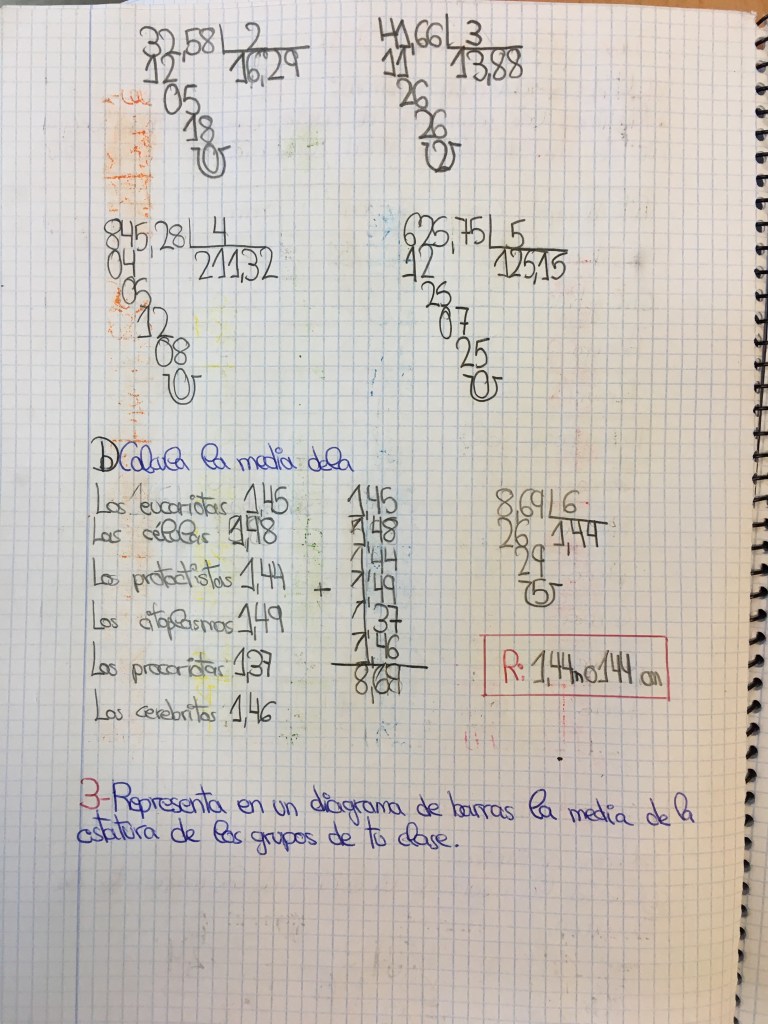 32,58 2
12 16,29
05
18
0
41,66 3
11 13,88
26
26
2
845,28 4
04 211,32
05
12
08
0
625,75 5
12 125,15
25
07
25
0
b) Calcula la media dela
Los eucariotas 1,45
Las células 1,48
Los protoctistas 1,44
Los citoplasmas 1,49
Los procariotas 1,37
Los cerebritos 1,46
1,45
1,48
1,44
+ 1,49
1,37
1,46
8,69
8,69 6
26 1,44
29
5
R: 1,44m o 144 cm
3-Representa en un diagrama de barras la media de la
estatura de los grupos de tu clase.